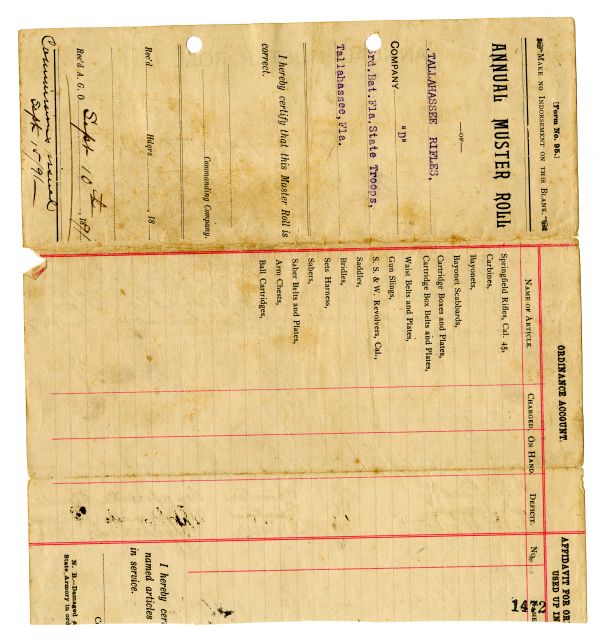 [Form No. 95.]
MAKE NO INDORSEMENT ON THIS BLANK.
ANNUAL MUSTER ROLL
—OF—
TALLAHASSEE RIFLES,
COMPANY "D"
3rd.Bat.Fla.State Troops,
Tallahassee,Fla.
I hereby certify that this Muster Roll is
correct.
Commanding Company.
Rec'd Hdqrs , 18
Rec'd A. G. O. Sept 10th 1891
Commissions issued
Sept 15, 91—
ORDINANCE ACCOUNT.
NAME OF ARTICLE. CHARGED. ON HAND. DEFICIT.
Springfield Rifles, Cal 45,
Carbines,
Bayonets,
Bayonet Scabbards,
Cartridge Boxes and Plates,
Cartridge Box Belts and Plates,
Waist Belts and Plates,
Gun Slings,
S. S. & W. Revolvers, Cal.,
Saddles,
Bridles,
Sets Harness,
Sabers,
Saber Belts and Plates,
Arm Chests,
Ball Cartridges,
AFFIDAVIT FOR OR
USED UP IN
No.
I hereby cer
named articles
in service.
N. B.—Damaged
State Armory in ord